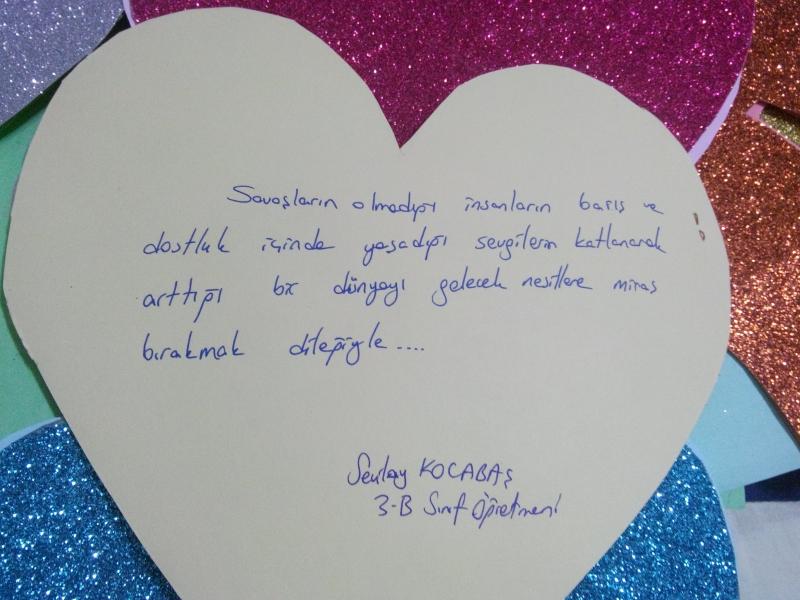 Savaşların olmadığı insanların barış ve
dostluk içinde yaşadığı sevgilerin katlanarak
arttığı bir dünyayı gelecek nesillere miras
bırakmak dileğiyle....
Senlay KOCABAŞ
3-B Sınıf Öğretmeni